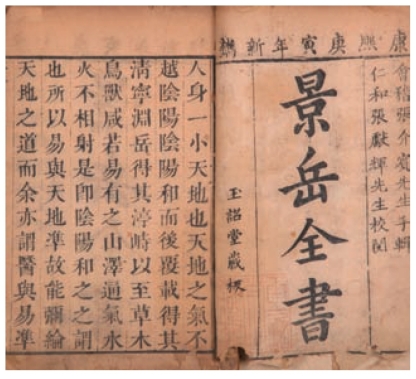 康熙庚寅年新鐫
會稽張介賓先生手輯
仁和張獻輝先生校閱
景岳全書
玉詔堂藏板
人身一小天地也天地之氣不
越陰陽陰陽和而後覆載得其
清寧淵岳得其渟峙以至草木
鳥獸咸若易有之山澤通氣水
火不相射是卽陰陽和之之謂
也所以易與天地準故能彌綸
天地之道而余亦謂醫與易準